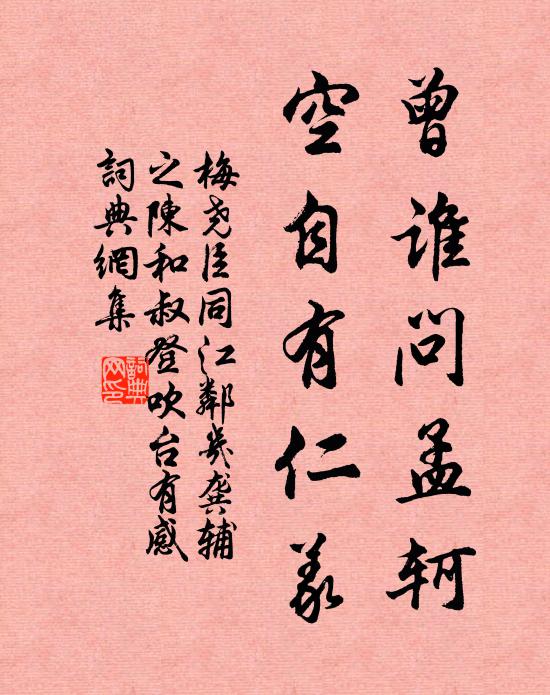 曾谁问孟轲
空自有仁义
梅尧臣同江鄰幾龚辅
之陳和叔登吹台有感
詞典網集
詞典網印